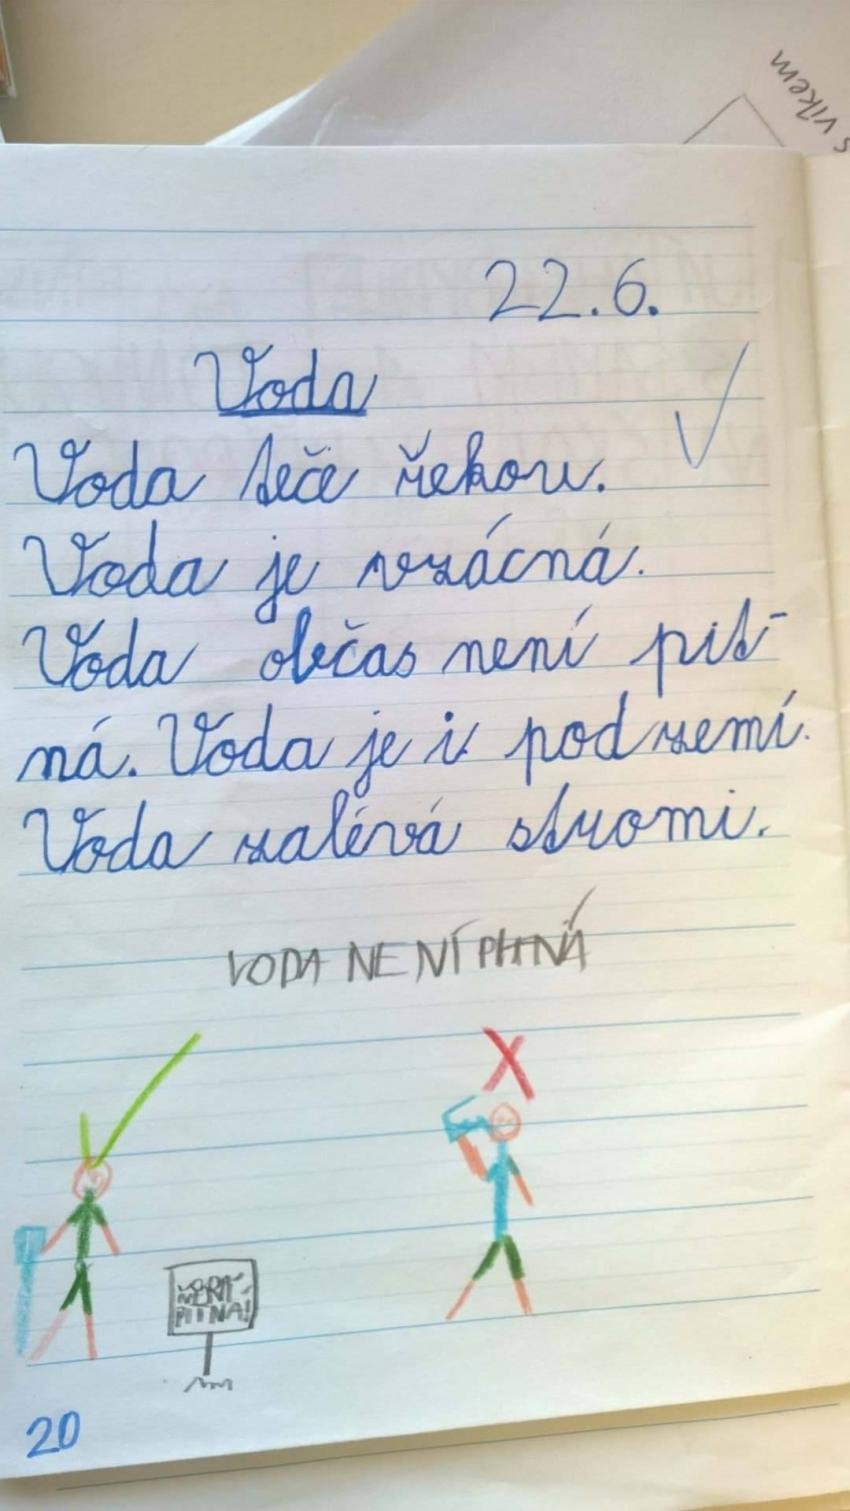 s víkem
22.6.
Voda
Voda teče řekou.
Voda je vzácná.
Voda občas není pit-
ná. Voda je i pod zemí.
Voda zalévá stromi.
VODA NENÍ PITNÁ
PITNÁ!
20